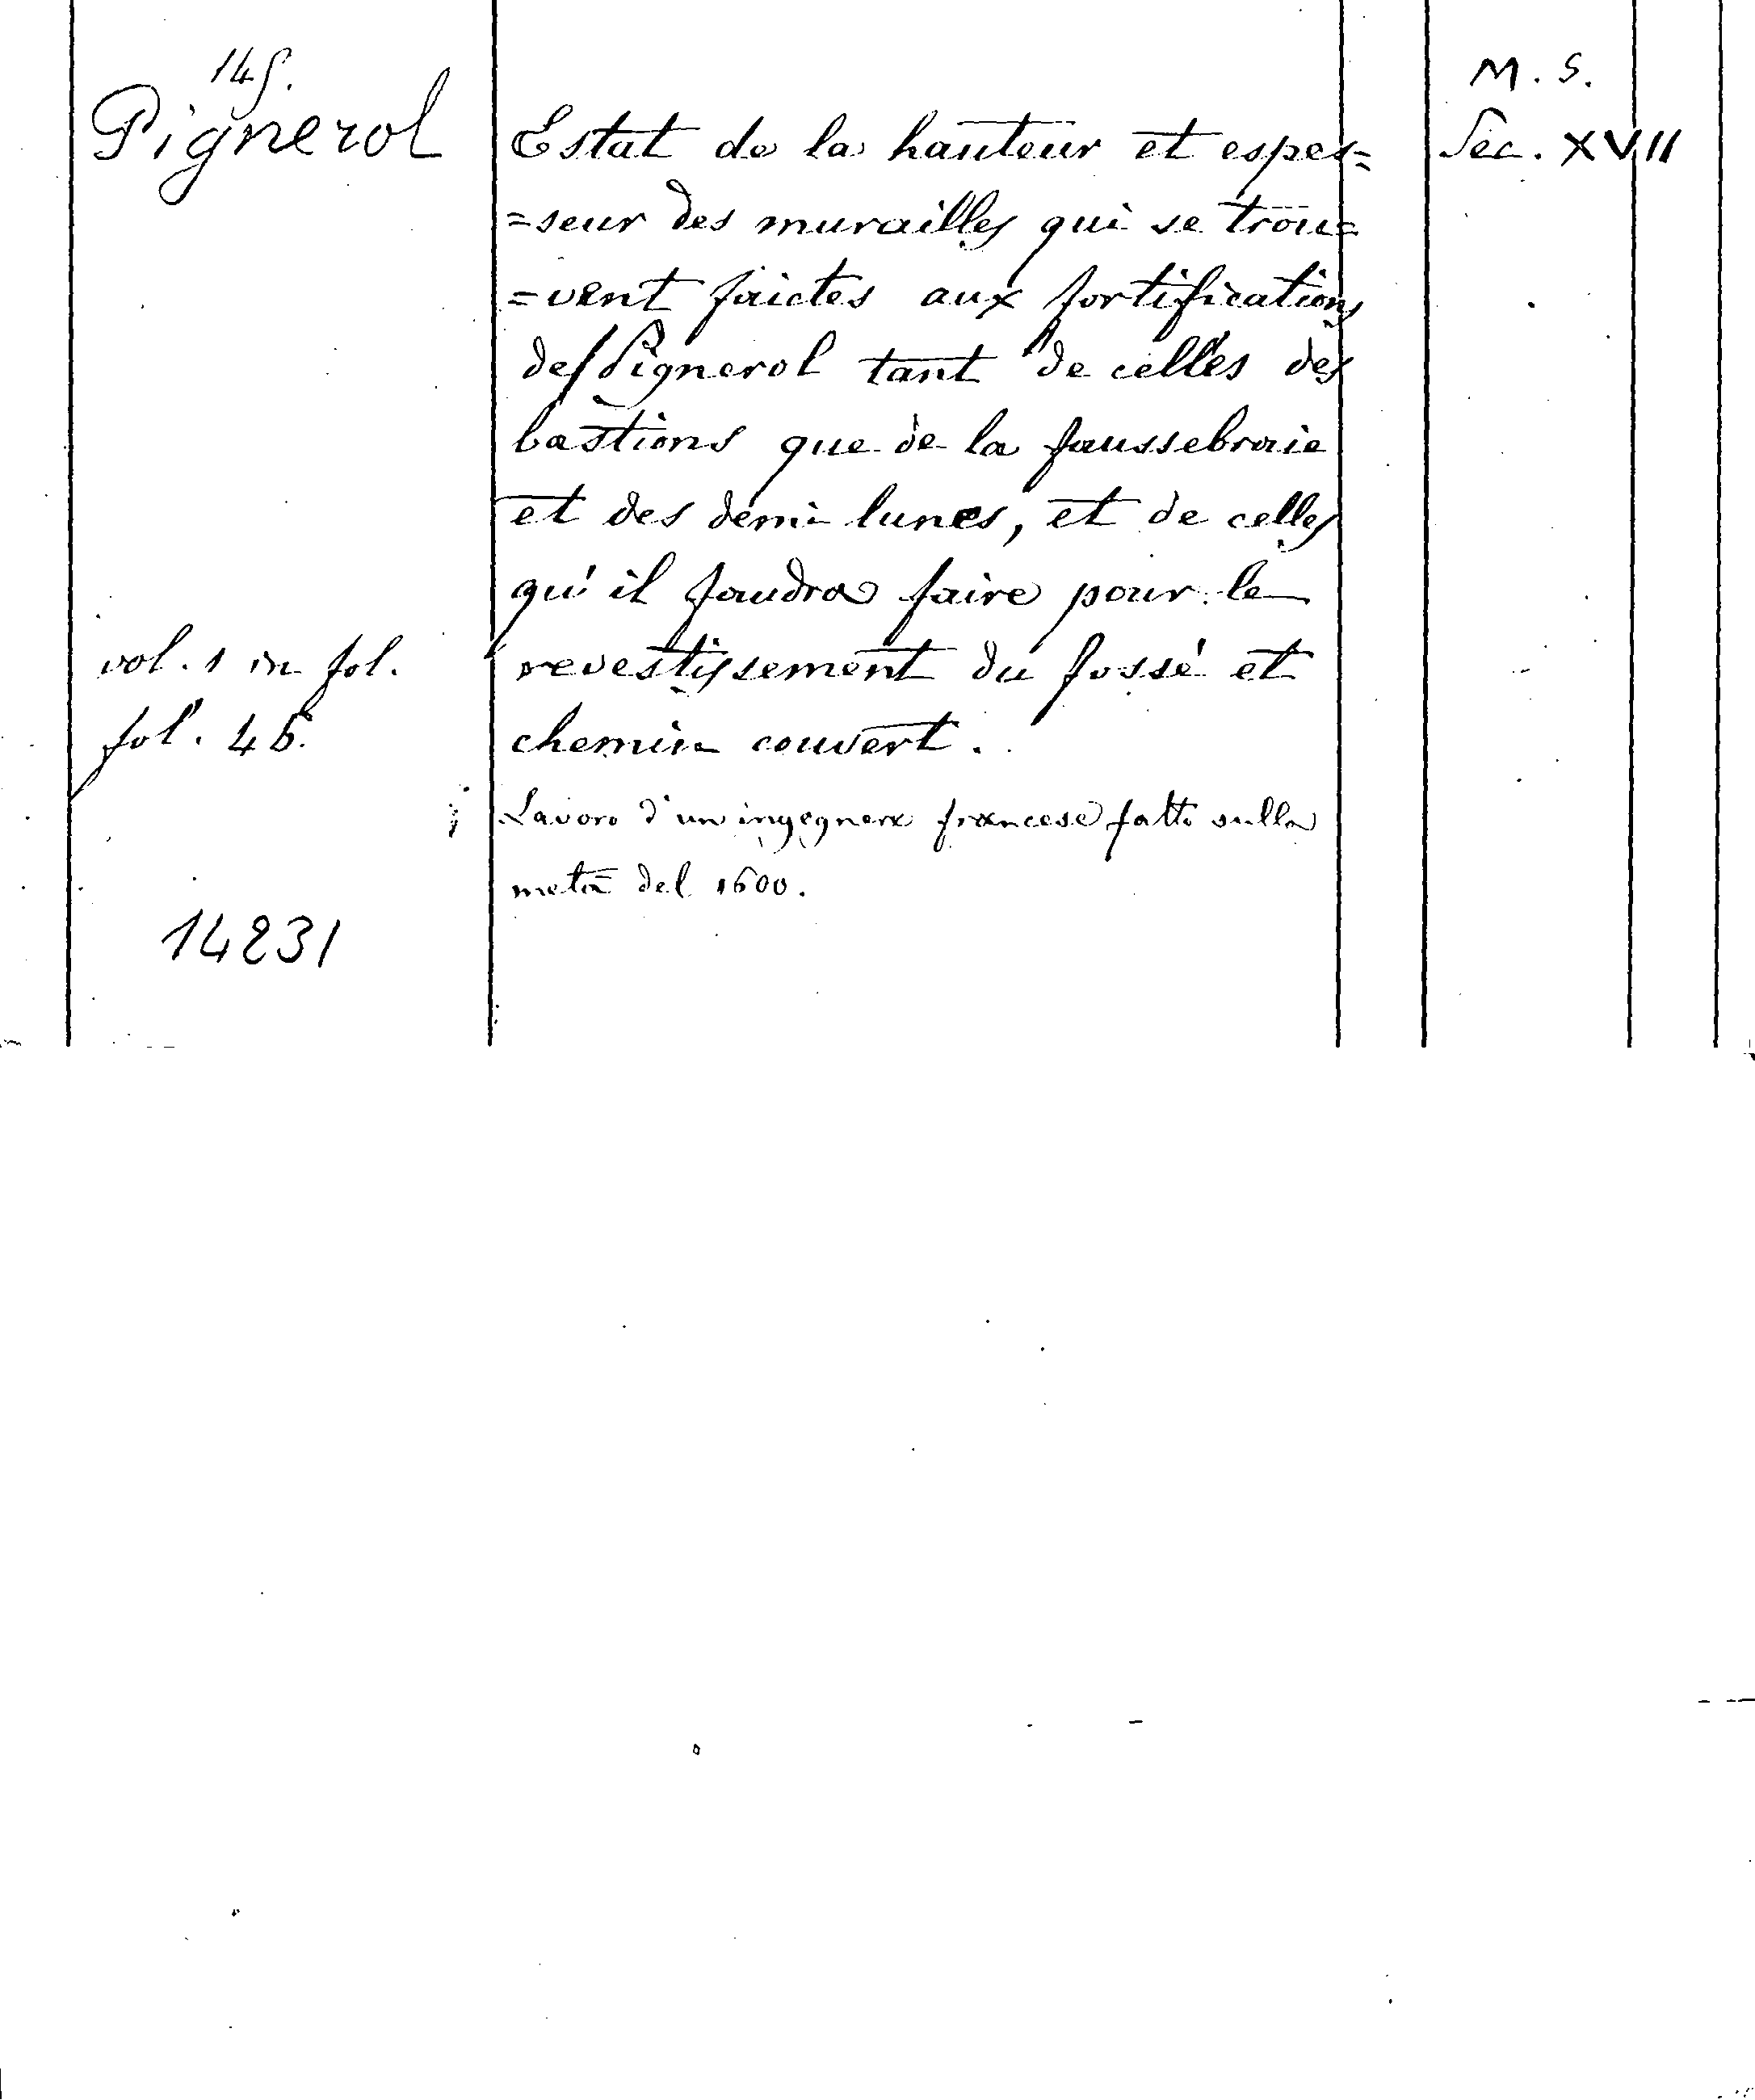 145.
Pignerol
Estat de la hauteur et espes=
=seur des murailles qui se trou=
=vent faictes aux fortifications
de Pignerol tant de celles des
bastions que de la faussebraie
et des demi lunes, et de celles
qu'il faudra faire pour le
revestissement du fossé et
chemin couvert.
Lavoro d'un ingegnere francese fatto sulla
metà del 1600.
vol. 1 in fol.
fol. 46.
14231
M. S.
Sec. XVII